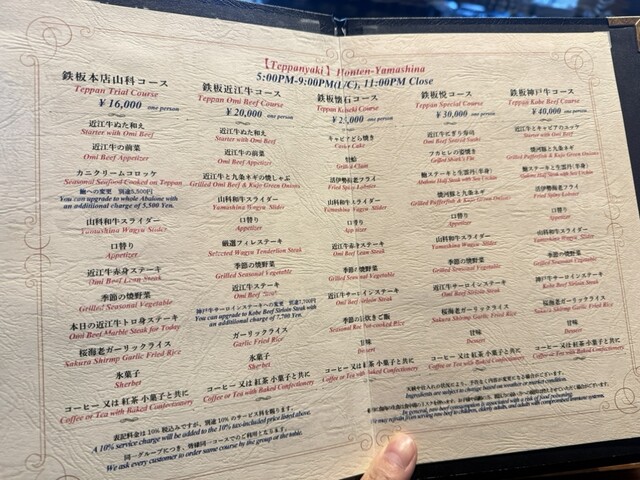 【Teppanyaki】Honten-Yamashina
5:00PM-9:00PM(L/C), 11:00PM Close
鉄板本店山科コース
Teppan Trial Course
¥16,000 one person
近江牛ぬた和え
Starter with Omi Beef
近江牛の前菜
Omi Beef Appetizer
カニクリームコロッケ
Seasonal Seafood Cooked on Teppan
鮑への変更 別途5,500円
You can upgrade to whole Abalone with
an additional charge of 5,500 Yen.
山科和牛スライダー
Yamashina Wagyu Slider
口替り
Appetizer
近江牛赤身ステーキ
Omi Beef Lean Steak
季節の焼野菜
Grilled Seasonal Vegetable
本日の近江牛トロ身ステーキ
Omi Beef Marble Steak for Today
桜海老ガーリックライス
Sakura Shrimp Garlic Fried Rice
氷菓子
Sherbet
コーヒー又は紅茶 小菓子と共に
Coffee or Tea with Baked Confectionery
鉄板近江牛コース
Teppan Omi Beef Course
¥20,000 one person
近江牛ぬた和え
Starter with Omi Beef
近江牛の前菜
Omi Beef Appetizer
近江牛と九条ネギの焼しゃぶ
Grilled Omi Beef & Kujo Green Onions
山科和牛スライダー
Yamashina Wagyu Slider
口替り
Appetizer
厳選フィレステーキ
Selected Wagyu Tenderloin Steak
季節の焼野菜
Grilled Seasonal Vegetable
近江牛ステーキ
Omi Beef Steak
神戸牛サーロインステーキへの変更 別途7,700円
You can upgrade to Kobe Beef Sirloin Steak with
an additional charge of 7,700 Yen.
ガーリックライス
Garlic Fried Rice
氷菓子
Sherbet
コーヒー又は紅茶 小菓子と共に
Coffee or Tea with Baked Confectionery
鉄板懐石コース
Teppan Kaiseki Course
¥25,000 one person
キャビアどら焼き
Caviar Cake
Grilled Clam
活伊勢海老フライ
Fried Spiny Lobster
山科和牛スライダー
Yamashina Wagyu Slider
口替り
Appetizer
近江牛赤身ステーキ
Omi Beef Lean Steak
季節の焼野菜
Grilled Seasonal Vegetable
近江牛サーロインステーキ
Omi Beef Sirloin Steak
季節の土鍋炊きご飯
Seasonal Rice
甘味
Dessert
コーヒー又は紅茶 小菓子と共に
Coffee or Tea with Baked Confectionery
鉄板悦コース
Teppan Special Course
¥30,000 one person
近江牛にぎり寿司
Omi Beef Seared Sushi
フカヒレの姿焼き
Grilled Shark's Fin
鮑ステーキと生雲丹(半身)
Abalone Half Steak with Sea Urchin
焼河豚と九条ネギ
Grilled Pufferfish & Kujo Green Onions
口替り
Appetizer
山科和牛スライダー
Yamashina Wagyu Slider
季節の焼野菜
Grilled Seasonal Vegetable
近江牛サーロインステーキ
Omi Beef Sirloin Steak
桜海老ガーリックライス
Sakura Shrimp Garlic Fried Rice
甘味
Dessert
コーヒー又は紅茶 小菓子と共に
Coffee or Tea with Baked Confectionery
鉄板神戸牛コース
Teppan Kobe Beef Course
¥40,000 one person
近江牛とキャビアのユッケ
Starter with Omi Beef
焼河豚と九条葱
Grilled Pufferfish & Kujo Green Onions
鮑ステーキと生雲丹(半身)
Abalone Half Steak with Sea Urchin
活伊勢海老フライ
Fried Spiny Lobster
口替り
Appetizer
山科和牛スライダー
Yamashina Wagyu Slider
季節の焼野菜
Grilled Seasonal Vegetable
神戸牛サーロインステーキ
Kobe Beef Sirloin Steak
桜海老ガーリックライス
Sakura Shrimp Garlic Fried Rice
甘味
Dessert
コーヒー又は紅茶 小菓子と共に
Coffee or Tea with Baked Confectionery
表記料金は10%税込みですが、別途10%のサービス料を賜ります。
A 10% service charge will be added to the 10% tax-included price listed above.
同一グループにつき、皆様同一コースでのご利用となります。
We ask every customer to order same course by the group at the table.
Ingredients are subject to change based on weather or market condition.
In general, raw consumption of beef poses risk of food poisoning.
We may refrain from serving raw beef to children, elderly adults, and adults with compromised immune system.